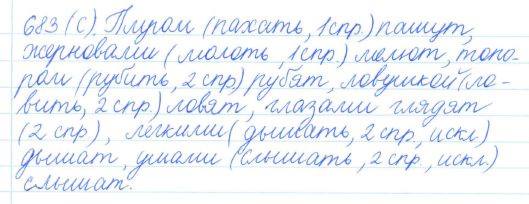 683 (с). Плугом (пахать, 1 спр.) пашут,
жерновами (молоть, 1 спр.) мелют, топо-
ром (рубить, 2 спр.) рубят, ловушкой (ло-
вить, 2 спр.) ловят, глазами глядят
(2 спр), легкими (дышать, 2 спр., искл.)
дышат, ушами (слышать, 2 спр., искл.)
слышат.